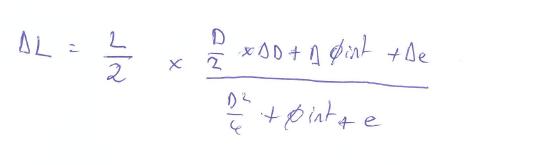 ΔL = L/2 × (D/2 × ΔD + Δ φint + Δe) / (D²/4 + φint + e)